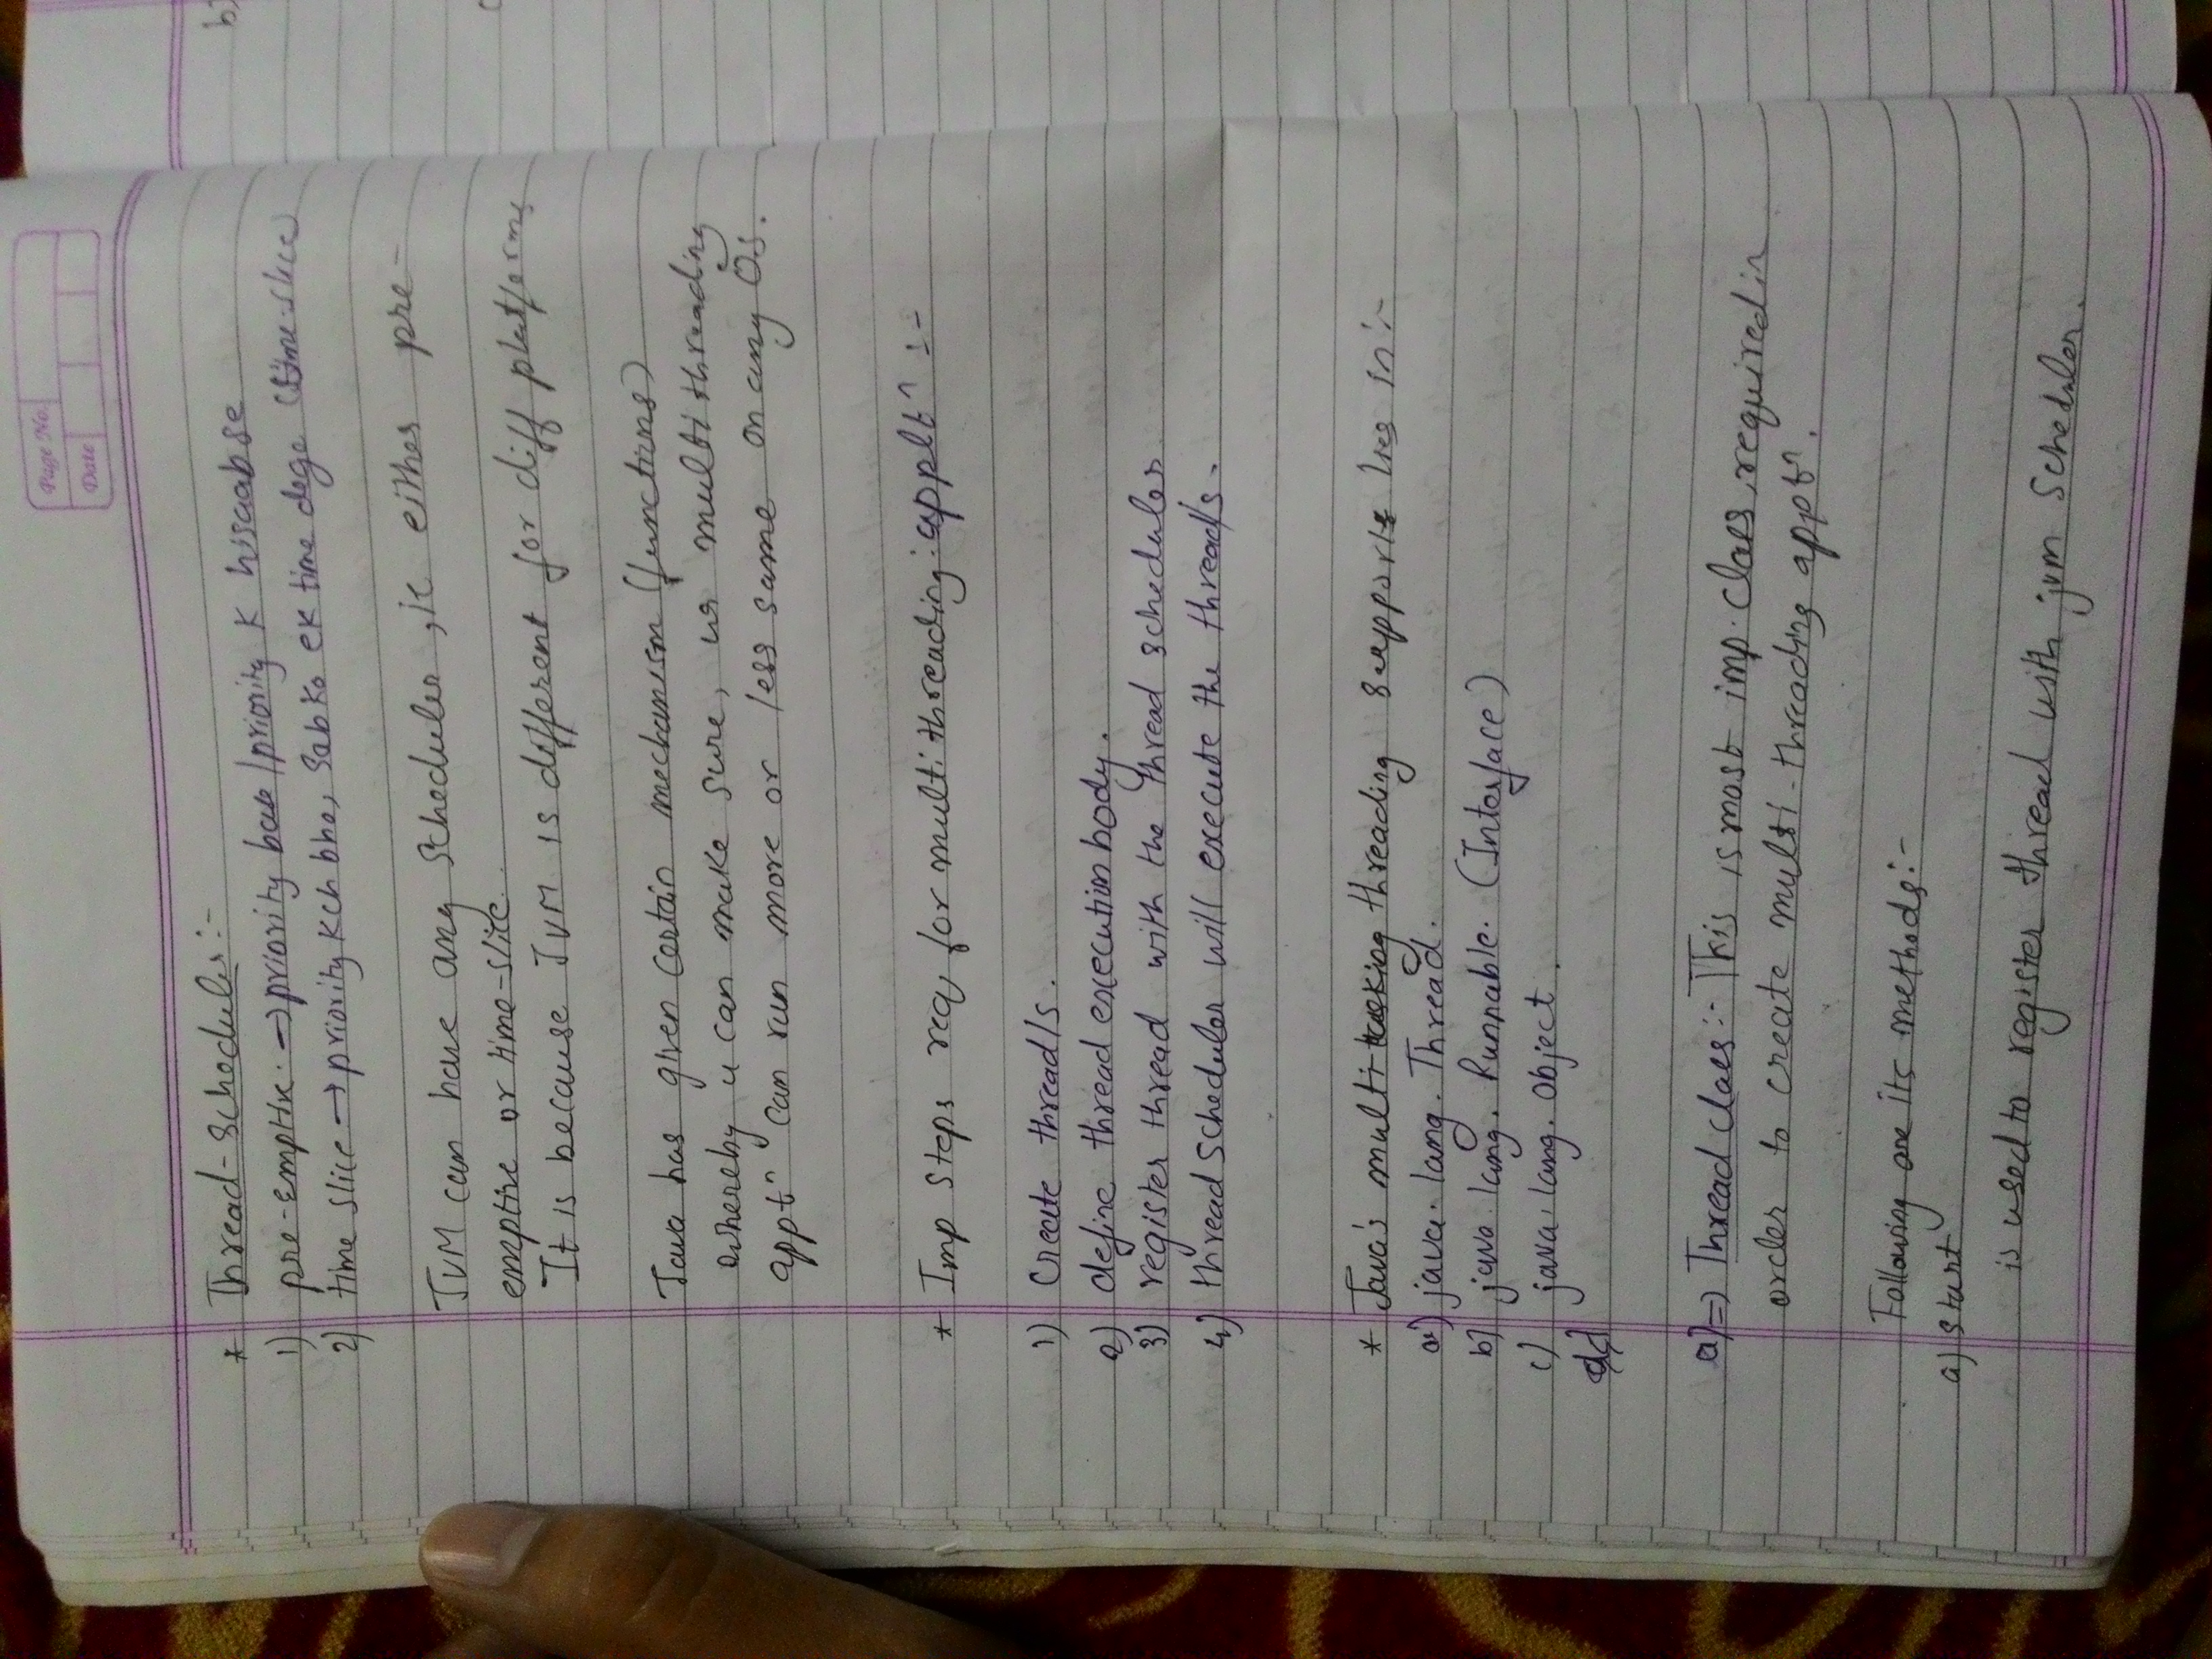 Page No.
Date
* Thread-scheduler:-
1) pre-emptive. → priority base / priority k hisaab se
2) time slice → priority kch bho, sabko ek time dega (time-slice)
JVM can have any scheduler, ie either pre-
emptive or time-slice.
It is because JVM is different for diff platforms
Java has given certain mechanism (functions)
whereby u can make sure, ur multithreading
appt^n can run more or less same on any OS.
* Imp steps req, for multithreading applt^n :-
1) Create thread/s.
2) define thread execution body.
3) register thread with the thread scheduler
4) thread scheduler will execute the thread/s.
* Java's multi-threading supports lies in:-
a) java.lang.Thread.
b) java.lang.Runnable. (Interface)
c) java.lang.Object.
a) => Thread class:- This is most imp. class, required in
order to create multi-threading appt^n.
Following are its methods:-
a) start
is used to register thread with jvm scheduler.
b)